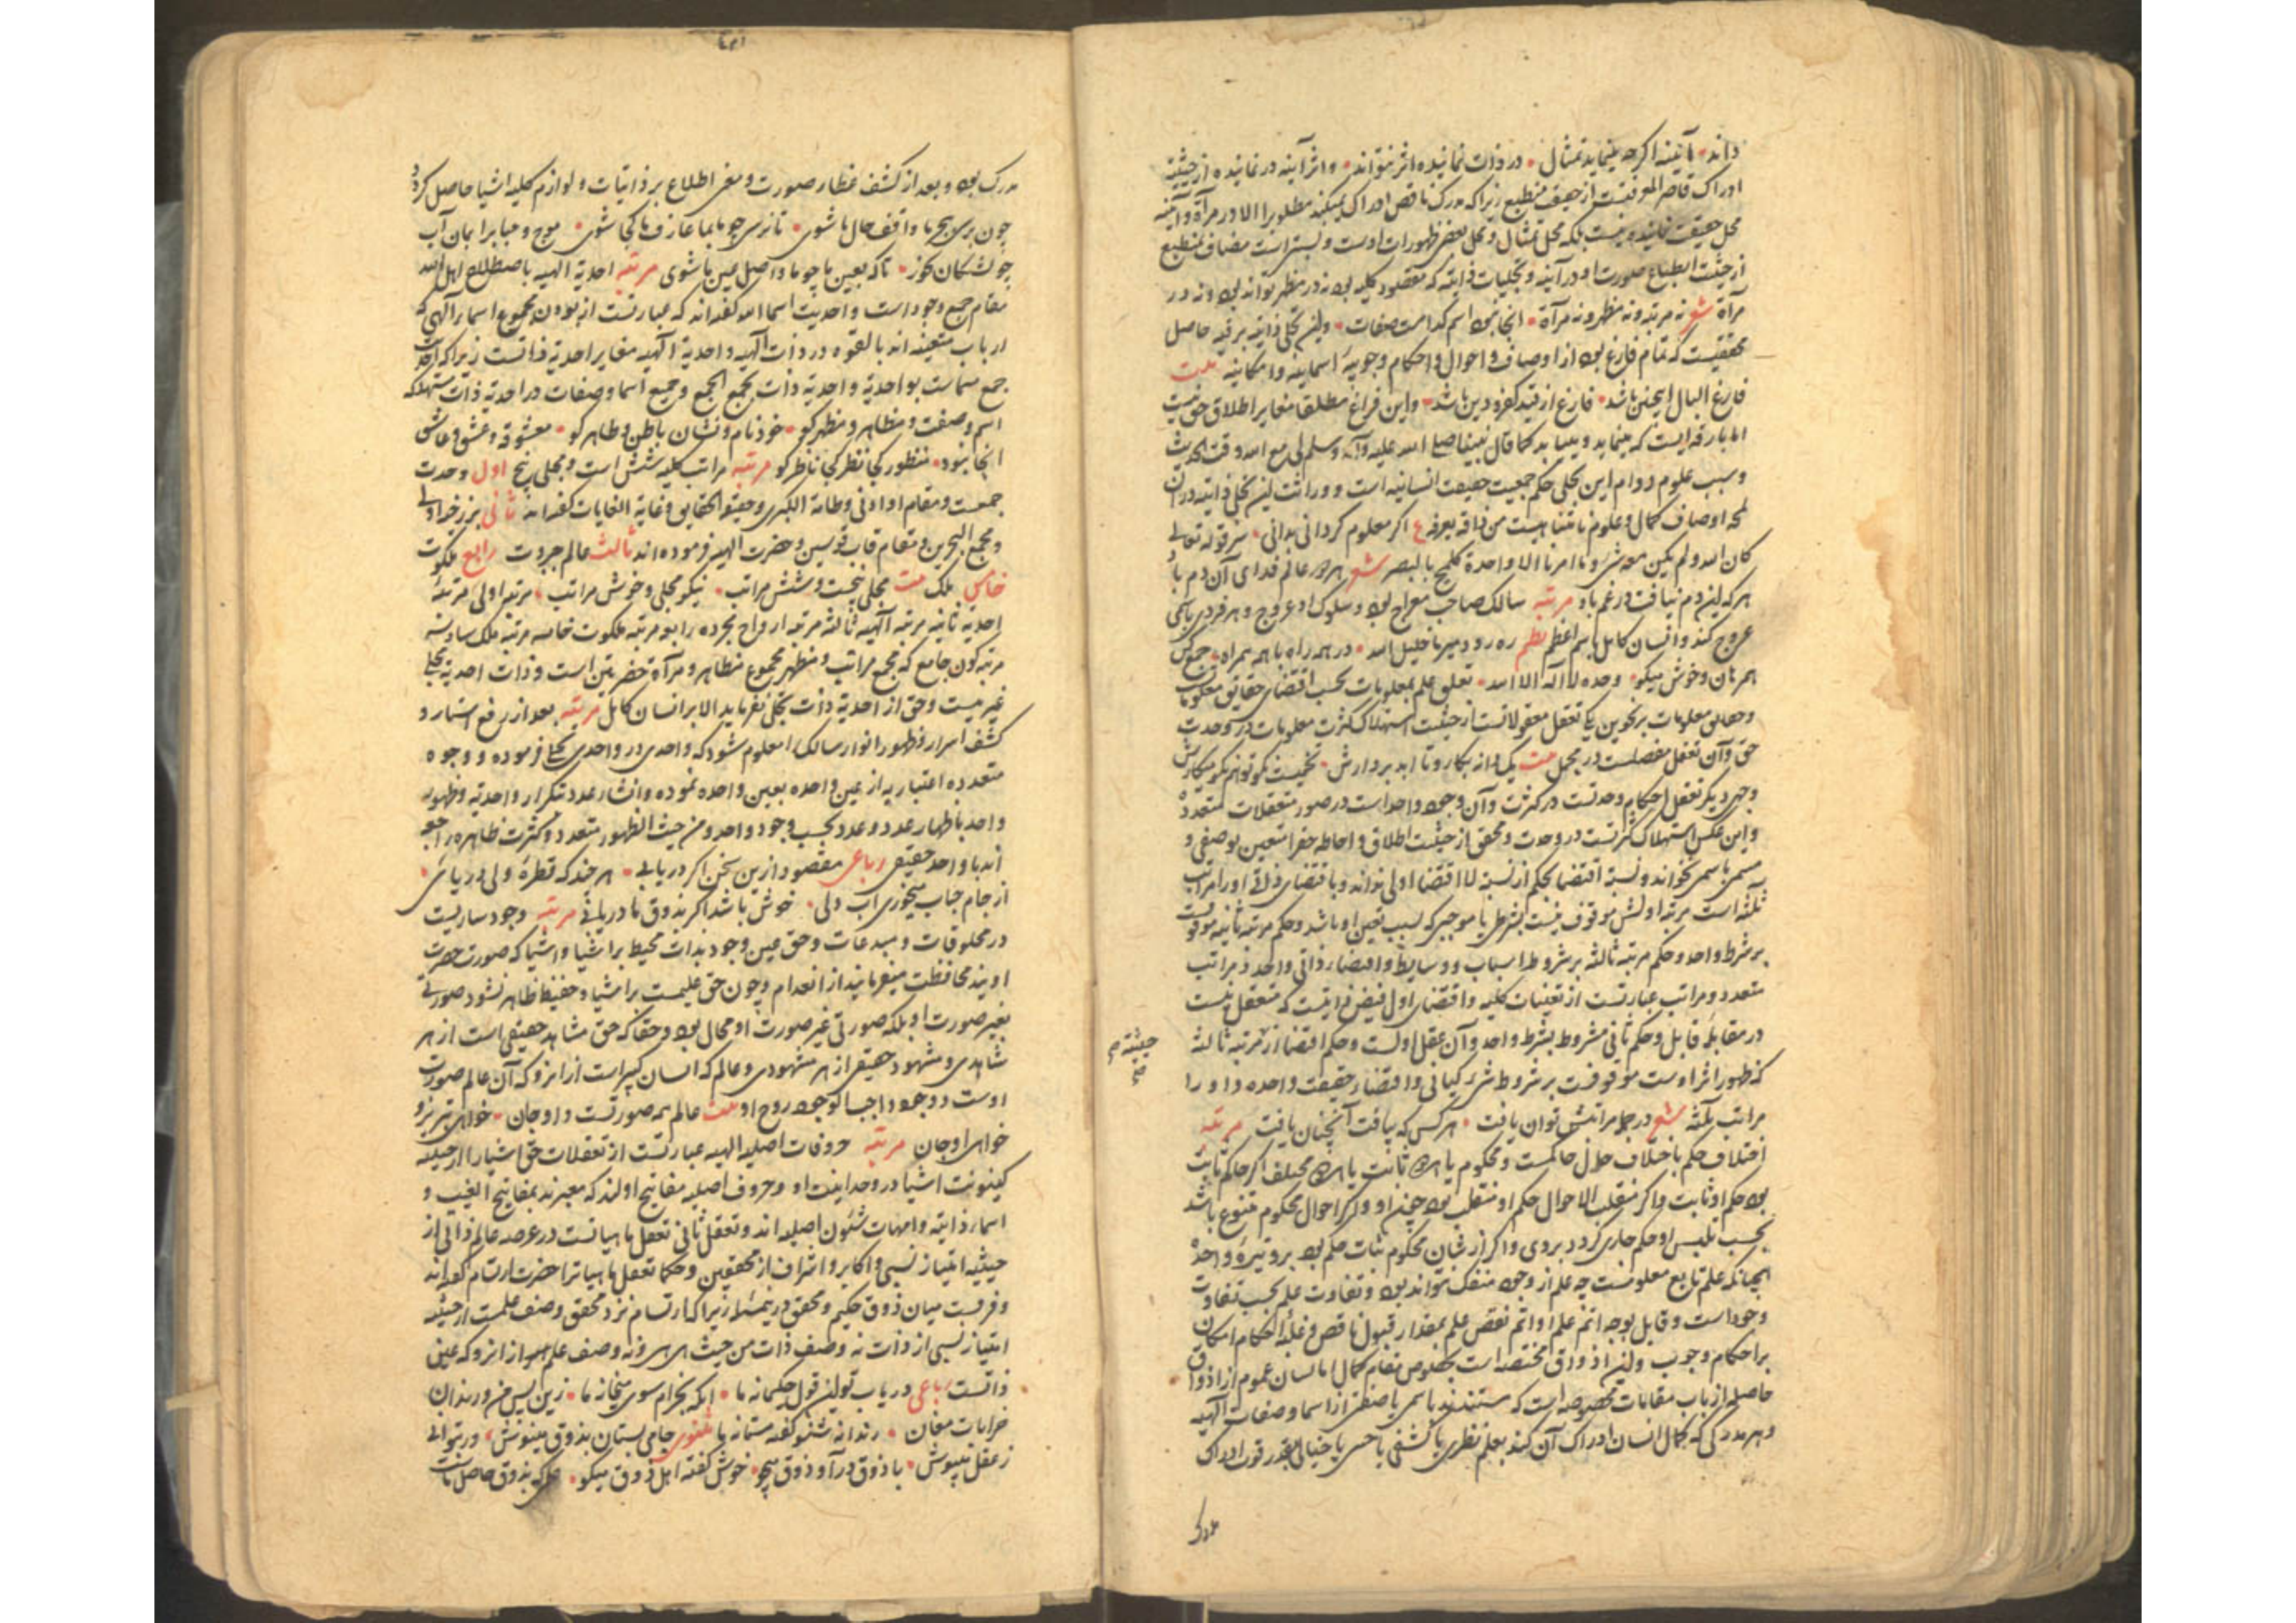 داند • آیینه اگرچه مینماید تمثال • در ذات نماینده اثر نتواند • واثر آینه در نماینده از حیثیت
ادراک قاصر الموقنست از حقیقت منطبع زیرا که مدرک ناقص ادراک نمیکند مطلوبرا الا در مرآة وآینه
محل حقیقت نماینده نیست بلکه محل تمثال و محل بعض ظهورات اوست و نسبتر است مضاف بمنطبع
از حیثیت انطباع صورت او در آینه و تجلیات ذاتیه که مقصود کلیه بود نه در مظهر تواند بود ونه در
مرآة شعر نه مرتبه ونه مظهر ونه مرآة • آنجا نبود اسم کدامست صفات • ولین تجلی ذاتیه برقیه حاصل
محققیست که تمام فارغ بود از اوصاف و احوال و احکام وجوبیه اسمائیه وامکانیه بیت
فارغ البال اینچنین باشد • فارغ از قید کفر و دین باشد • واین فراغ مطلقا مغایر اطلاق حق نیست
اما بارقه ایست که مینماید و میباید کما قال نبینا صلی الله علیه وآله وسلم لی مع الله وقت الحدیث
وسبب علوم دوام این تجلی حکم جمعیت حقیقت انسانیه است و وراثت لین تجلی ذاتیه در آن
لمحه اوصاف کمال و علوم نامتناهیست من ذاقه یعرفه ع اگر معلوم گردانی بدانی • سر قوله تعالی
کان الله ولم یکن معه شیء وما امرنا الا واحدة کلمح بالبصر شعر هر دو عالم فدای آن دم باد
هر که لین دم نیافت در غم باد مرتبه سالک صاحب معراج بود وسلوک او عروج وهر فردی باسمی
عروج کند وانسان کامل باسم اعظم نظم ره رود میر با خلیل الله • در همه راه با همه همراه • جمع کن
همرهان وخوش میگو • وحده لا اله الا الله • تعلق علم بمعلومات بحسب اقتضای حقایق معلومات
وحقایق معلومات بر نحوین یکی تعقل معقولاتست از حیثیت استهلاک کثرت معلومات در وحدت
حق وآن تعقل مفصلست در مجمل بیت یک دانه بکار و تا ابد بردارش •
وجهی دیگر تعقل احکام وحدتست در کثرت وآن وجود واحد است در صور متعقلات متعدده
واین عکس استهلاک کثرتست در وحدت ومحقق از حیثیت اطلاق واحاطه حق را متعین بوصفی و
مسمی باسمی نخواند ونسبة اقتضا بحکم از نسبة لا اقتضا اولی نداند وباقتضای ذاتی او را مراتب
ثلثه است مرتبه اولش موقوف نیست بشرطی یا موجبی که سبب تعین او باشد وحکم مرتبه ثانیه موقوفست
بر شرط واحد وحکم مرتبه ثالثه بر شروط اسباب ووسایط واقتضاء ذاتی واحد ذو مراتب
متعدد ومراتب عبارتست از تعینات کلیه واقتضای اول فیض ذاتیست که متعقل نیست
در مقابله قابل وحکم ثانی مشروط بشرط واحد وآن عقل اولست وحکم اقتضا از مرتبه ثالثه
که ظهور اثر اوست موقوفست بر شروط شرکیانی واقتضاء حقیقت واحده دارد
مراتب ثلثه شعر در جمله مراتبش توان یافت • هر کس که بیافت آنچنان یافت مرتبه
اختلاف حکم باختلاف حال حاکمست ومحکوم یا امری ثابت یا امری مختلف اگر حاکم ثابت
بود حکم او ثابت واگر منقلب الاحوال حکم او منقلب بود همچنین او واگر احوال محکوم متنوع باشد
بحسب تلبس او حکم جاری گردد بروی واگر از شان محکوم ثبات حکم بود بر وتیره واحده
همچنانکه علم تابع معلومست چه علم از وجود منفک نتواند بود وتفاوت علم بحسب تفاوت
وجود است وقابل بوجه اتم علم او اتم نقص علم بمقدار قبول ناقص وغلبه احکام امکان
بر احکام وجوب ولین اذواق مختصه است بخلوص مقام کمال اما لسان عموم از اذواق
حاصله ارباب مقامات مخصوصه است که مستندند باسمی یا صفتی از اسما وصفات الهیه
وهر مدرکی که کمال انسان ادراک آن کند بعلم نظری یا کشفی یا حسی یا خیالی بقدر قوت ادراک
مدرک
حیثیة صح
مدرک بود وبعد از کشف غطاء صورت ومعنی اطلاع بر ذاتیات و لوازم کلیه اشیا حاصل گردد
چون برسی ببحر ما واقف حال ما شوی • تا نرسی چو ما بما عارف ما کجا شوی • موج وحباب را بمان آب
چو تشنگان بخور • تا که بعین ما چو ما واصل عین ما شوی مرتبه احدیة الهیه باصطلاح اهل الله
مقام جمع وجود است واحدیت اسما الله گفته اند که عبارتست از بودن مجموع اسماء الهی که
ارباب متعینه اند بالقوه در ذات الهیه واحدیة الهیه مغایر احدیة ذاتست زیرا که احدیت
جمع مسماست بواحدیة واحدیة ذات بجمع الجمع وجمیع اسما وصفات در احدیة ذات مستهلکه
اسم وصفت ومظاهر ومظهر کو • خود نام ونشان باطن وظاهر کو • معشوقه وعشق وعاشق
آنجا نبود • منظور کجا نظر کجا ناظر کو مرتبه مراتب کلیه شش است ومجلی پنج اول وحدت
جمعست ومقام او ادنی وطامة الکبری وحقیقة الحقایق وغایة الغایات گفته اند ثانی برزخ اولی
ومجمع البحرین ومقام قاب قوسین وحضرت الهیه فرموده اند ثالث عالم جبروت رابع ملکوت
خامس ملک بیت مجلی پنجست وشش مراتب • نیکو مجلی وخوش مراتب • مرتبه اولی مرتبه
احدیه ثانیه مرتبه الهیه ثالثه مرتبه ارواح مجرده رابعه مرتبه ملکوت خامسه مرتبه ملک سادسه
مرتبه کون جامع که مجمع مراتب ومظهر مجموع مظاهر ومرآة حضرتین است وذات احدیة تجلی
غیر نیست وحق از احدیة ذات تجلی نفرماید الا بر انسان کامل مرتبه بعد از رفع استار و
کشف اسرار وظهور انوار سالک را معلوم شود که واحدی در واحدی تجلی فرموده ووجوه
متعدده اعتباریه از عین واحده بعین واحده نموده وانشاء عدد تکرار واحدیه وظهور
واحد باظهار عدد وعدد بحسب وجود واحد ومن حیث الظهور متعدد وکثرت ظاهره راجع
اند با واحد حقیقی رباعی مقصود ازین سخن اگر دریابی • هر چند که قطره ولی دریائی •
از جام حباب میخوری آب ولی • خوش باشد اگر بذوق ما دریابی مرتبه وجود ساریست
در مخلوقات ومبدعات وحق عین وجود بذات محیط بر اشیا واشیا که صورت حضرت
اویند محافظت میفرماید از انعدام وچون حق علیمست بر اشیا وحفیظ ظاهر نشود صورتی
بغیر صورت او بلکه صورتی غیر صورت او محال بود وحقا که حق شاهد حقیقی است از هر
شاهدی ومشهود حقیقی از هر مشهودی وعالم که انسان کبیر است از انرو که آن عالم صورت
اوست ووجود واجب الوجود روح او بیت عالم همه صورتست واو جان • خواهی تن برو
خواهی او جان مرتبه حروفات اصلیه الهیه عبارتست از تعقلات حق اشیا را از حیثیه
کینونت اشیا در وحدانیت او وحروف اصلیه مفاتیح اولند که معبرند بمفاتیح الغیب و
اسماء ذاتیه وامهات شئون اصلیه اند وتعقل ثانی تعقل ماهیاتست در عرصه عالم ذاتی از
حیثیه امتیاز نسبی واکابر واشراف از محققین وحکما تعقل ماهیاترا حضرت ارتسام گفته اند
وفرقست میان ذوق حکیم ومحقق درین مسئله زیرا که ارتسام نزد محقق وصف علمست از حیثیه
امتیاز نسبی از ذات نه وصف ذات من حیث هی هی ونه وصف علم هم از انرو که عین
ذاتست رباعی دریاب تو لین قول حکیمانه ما • آنکه بخرام سوی میخانه ما • زین پس من ورندان
خرابات مغان • رندانه شنو گفته مستانه ما مثنوی جامی بستان بذوق مینوش • ور توانی
ز عقل میپوش • با ذوق درآ وذوق میجو • خوش گفته اهل ذوق میگو • علمی که بذوق حاصل ماست